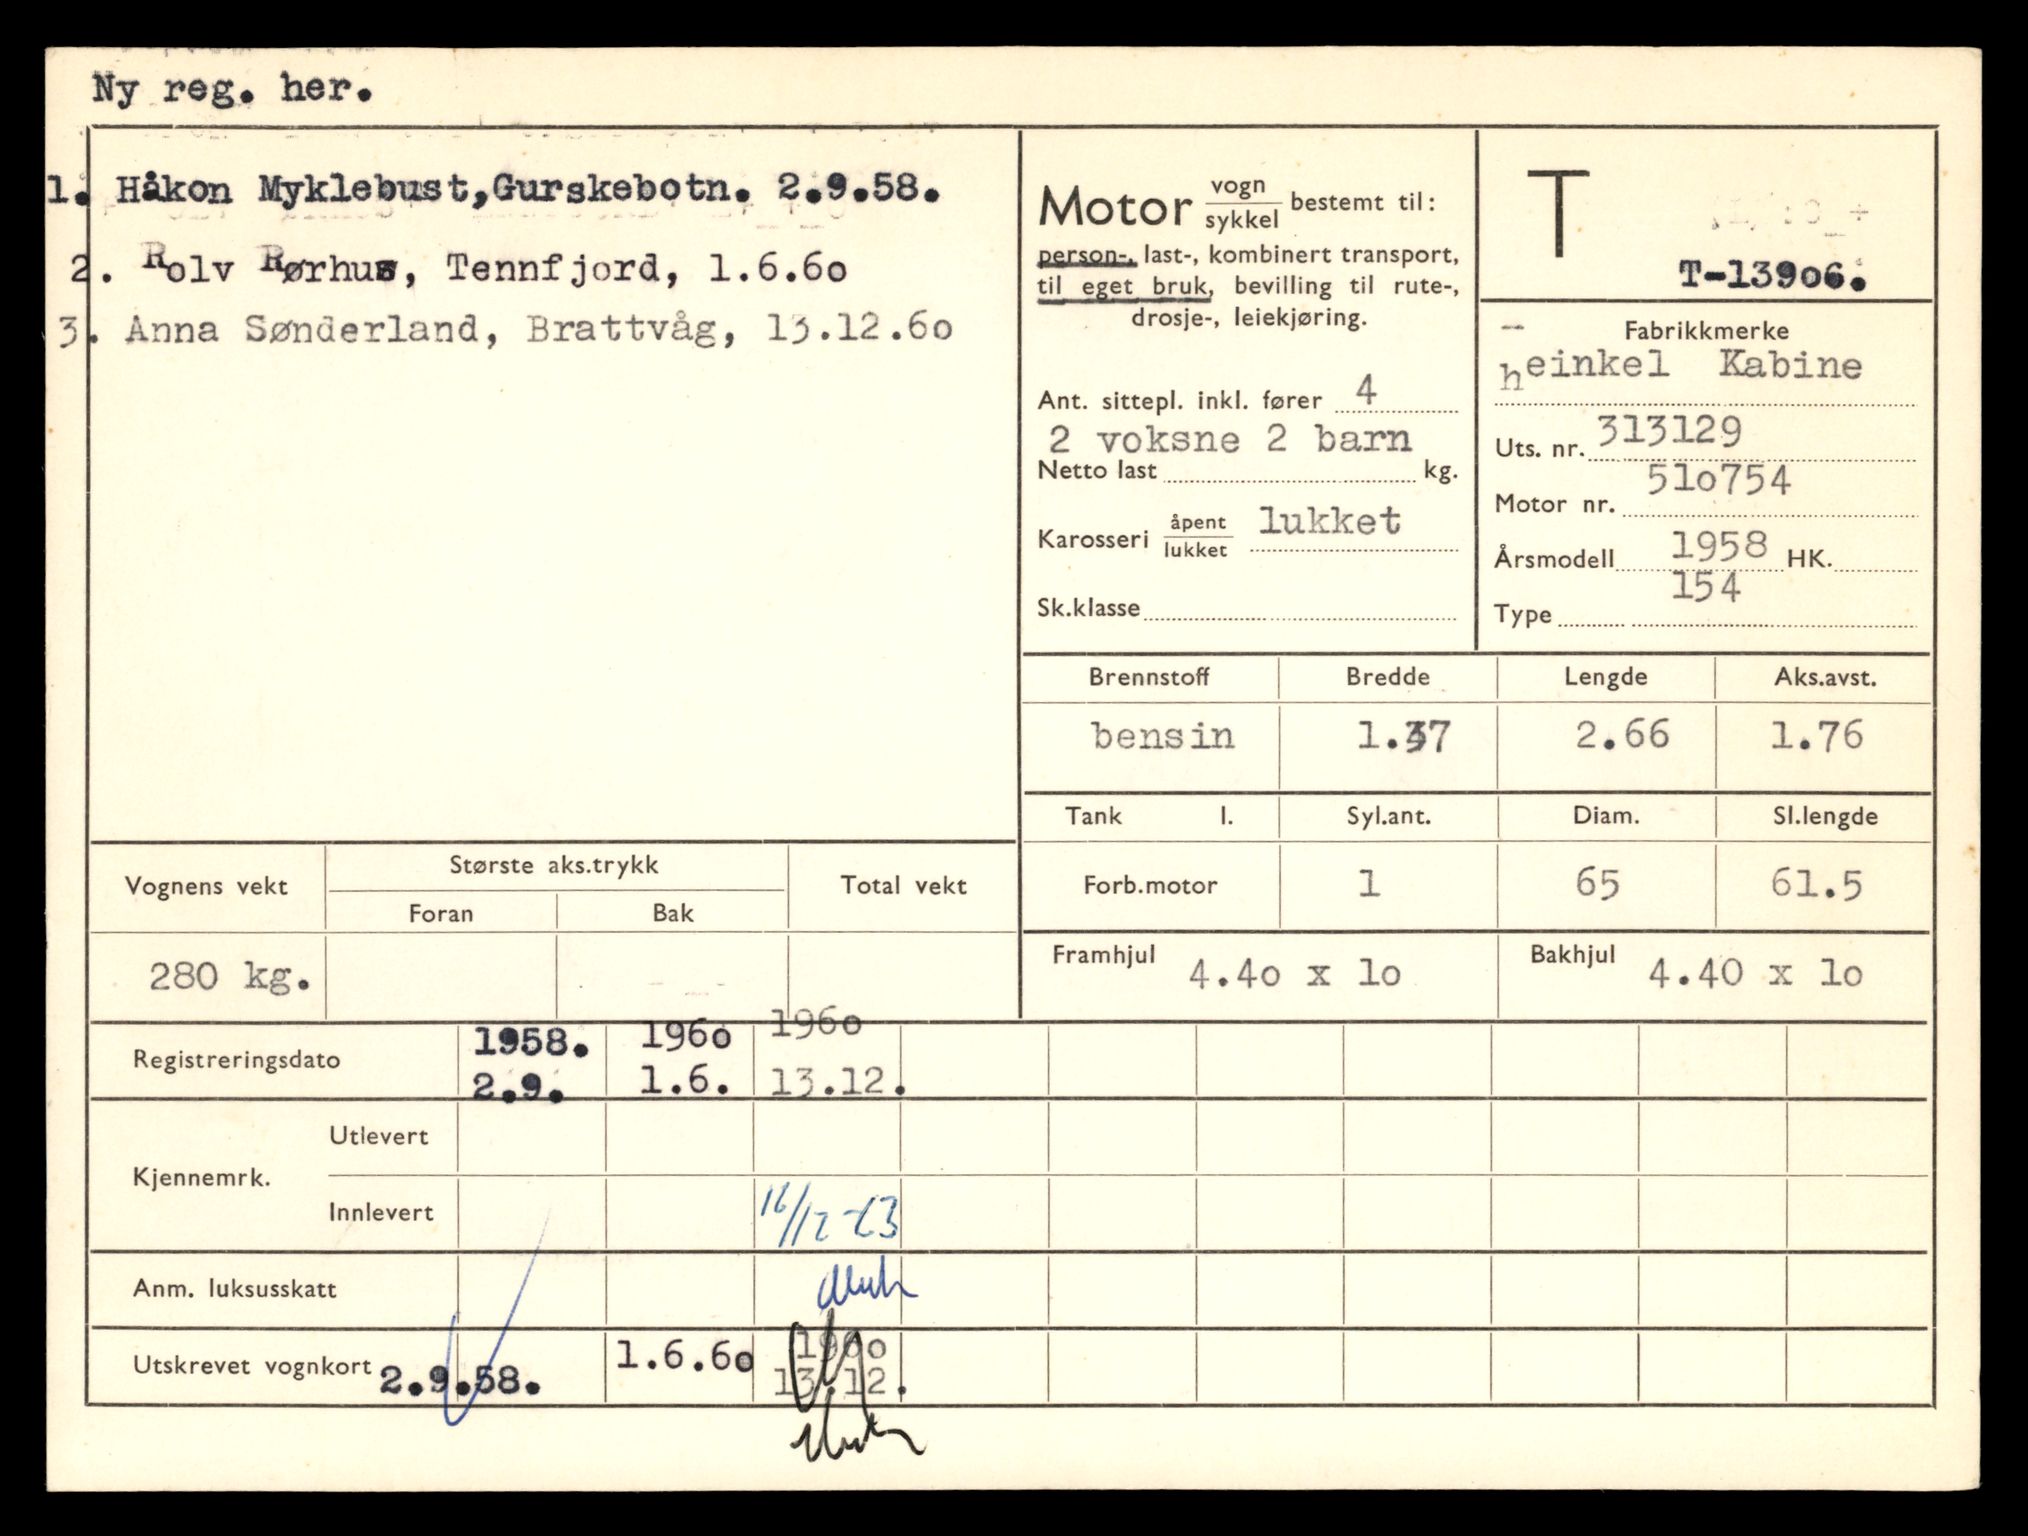 Ny reg. her.
1. Håkon Myklebust,Gurskebotn. 2.9.58.
2. Rolv Rørhus, Tennfjord, 1.6.6o
3. Anna Sønderland, Brattvåg, 13.12.6o
Motor vogn/sykkel bestemt til:
person-, last-, kombinert transport,
til eget bruk, bevilling til rute-,
drosje-, leiekjøring.
Ant. sittepl. inkl. fører 4
2 voksne 2 barn
Netto last kg.
Karosseri åpent/lukket lukket
Sk.klasse
T
T-139o6.
Fabrikkmerke
heinkel Kabine
Uts. nr. 313129
Motor nr. 51o754
Årsmodell 1958 HK.
Type 154
Brennstoff Bredde Lengde Aks.avst.
bensin 1.37 2.66 1.76
Tank l. Syl.ant. Diam. Sl.lengde
Forb.motor 1 65 61.5
Framhjul 4.4o x 1o Bakhjul 4.40 x 1o
Vognens vekt Største aks.trykk Total vekt
Foran Bak
280 kg.
Registreringsdato 1958. 196o 196o
2.9. 1.6. 13.12.
Kjennemrk. Utlevert
Innlevert /12-63
Anm. luksusskatt
Utskrevet vognkort 2.9.58. 1.6.6o 196o
13.12.